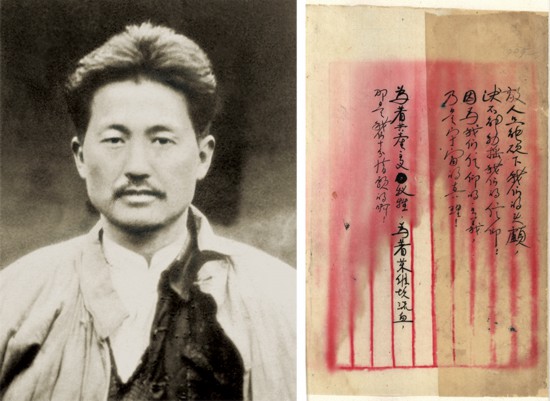 敌人只能砍下我们的头顱，
决不能动摇我们的信仰！
因為我们信仰的主義，
乃是宇宙的真理！
為着共產主义牺牲，為着苏維埃流血，
那是我们十分情願的啊！